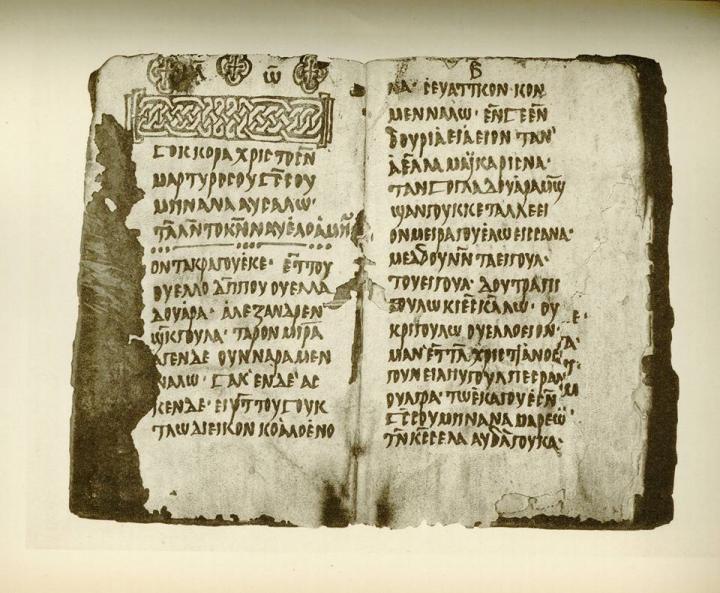 ⲁ̄ ⲱ̄
ⳟⲟⲕⲕⲟⲣⲁ ⲭⲣⲓⲥⲧⲟⲥⲛ̄
ⲙⲁⲣⲧⲩⲣⲟⲥⲟⲩ ⳟⲥ̄ⲥⲟⲩ
ⲙⲏⲛⲁⲛⲁ ⲁⲩⲥⲁⲗⲱ·
ⲧⲁⲗⲗⲛ̄ ⲧⲟⲕⲛ̄ⲛⲁⲩⲉⲗⲟ ⲁⲙⲏⲛ̄
ⲟⲛⲧⲁⲕⲣⲁⲅⲟⲩⲉ̄ⲕⲉ· ⲉⲧ̄ⲧⲟⲩ
ⲟⲩⲉⲗⲗⲟ ⲇⲡ̄ⲡⲟⲩ ⲟⲩⲉⲗⲗⲁ
ⲇⲟⲩⲁ̄ⲣⲁ· ⲁ̄ⲗⲉⲝⲁⲛⲇⲣⲉⲛ
ϣⲓ̄ⲕⳟⲟⲩⲗⲁ· ⲧⲁⲣⲟⲛ ⲙⲓ̄ⲣⲁ
ⲁⲅⲉⲛⲇⲉ ⲟⲩⲛⲛⲁⲣⲁ ⲙⲉⲛ
ⲛⲁⲗⲱ· ⳟⲁⲕ ⲉⲛⲇⲉ ⲁⲥ
ⲕⲉⲛⲇⲉ· ⲉⲓⲛ̄ ⲧⲟⲩⳟⲟⲩⲕ
ⲧⲁⲱ ⲇⲓⲉⲓⲕⲟⲛ ⲕⲟⲁ̄ⲗⲟ ⲉⲛⲟ
ⲃ̄
ⲗⲁ· ⲉ̄ⲉⲩⲁⲧⲧⲕⲟⲛ ⲕⲟⲛ
ⲙⲉⲛⲛⲁⲗⲱ· ⲉⲛ̄ⳟⲉⲉⲛ̄
ⲇⲟⲩⲣⲓⲁ̄ ⲉⲓⲁ̄ⲉⲓⲟⲛ ⲧⲁⲛ
ⲁ̄ⲉⲗⲗⲁ ⲙⲁⲓ̈ⲕⲁⲣⲓⲉⲛⲁ·
ⲧⲁⲛ ⳟⲟⳟⲗⲁ ⲇⲟⲩⲁ̄ⲣⲁⲙϣ̄
ϣⲁⲛⳟⲟⲩⲕⲕⲉ ⲧⲁⲗⲗⲉⲉⲓ
ⲟⲛ ⲙⲉⲓⲣⲁⳟⲟⲩⲉ̄ⲗⲱ ⲉⲓⲥⲥⲁⲛⲁ·
ⲙⲉⲇⲇⲟⲩⲛ̄ⲛ̄ ⲧⲁⲉⲓⳟⲟⲩⲗ·
ⲧⲟⲩⲉⲓⳟⲟⲩⲗ· ⲇⲟⲩⲧⲣⲁⲡⲓ
ⳟⲟⲩⲗⲱ ⲕⲓⲉ̄ⲣⲓ̄ⲕⲁ̄ⲗⲱ· ⲟⲩ
ⲕⲣⲓⳟⲟⲩⲗⲱ ⲟⲩⲉⲗⲟⲉⲓⲟⲛ·
ⲙⲁⲛ ⲉⲧ̄ⲧⲁ̄ ⲭⲣⲓⲥⲧⲓ̈ⲁⲛⲟⲥ
ⳟⲟⲩⲛⲉⲓⲁ̄
ⲟⲩⲁⳟⲣⲁ· ⲧⲱ̄ⲉⲕⲁⳟⲟⲩⲉ̄
ⳟⲥ̄ⲥⲟⲩ ⲙⲏⲛⲁⲛⲁ ⲙⲁⲣⲉⲱ̄
ⲧⲛ̄ ⲕⲥ̄ⲥⲉⲗⲁ ⲁⲩⲇⲁ̄ⳟⲟⲩⲕⲁ·